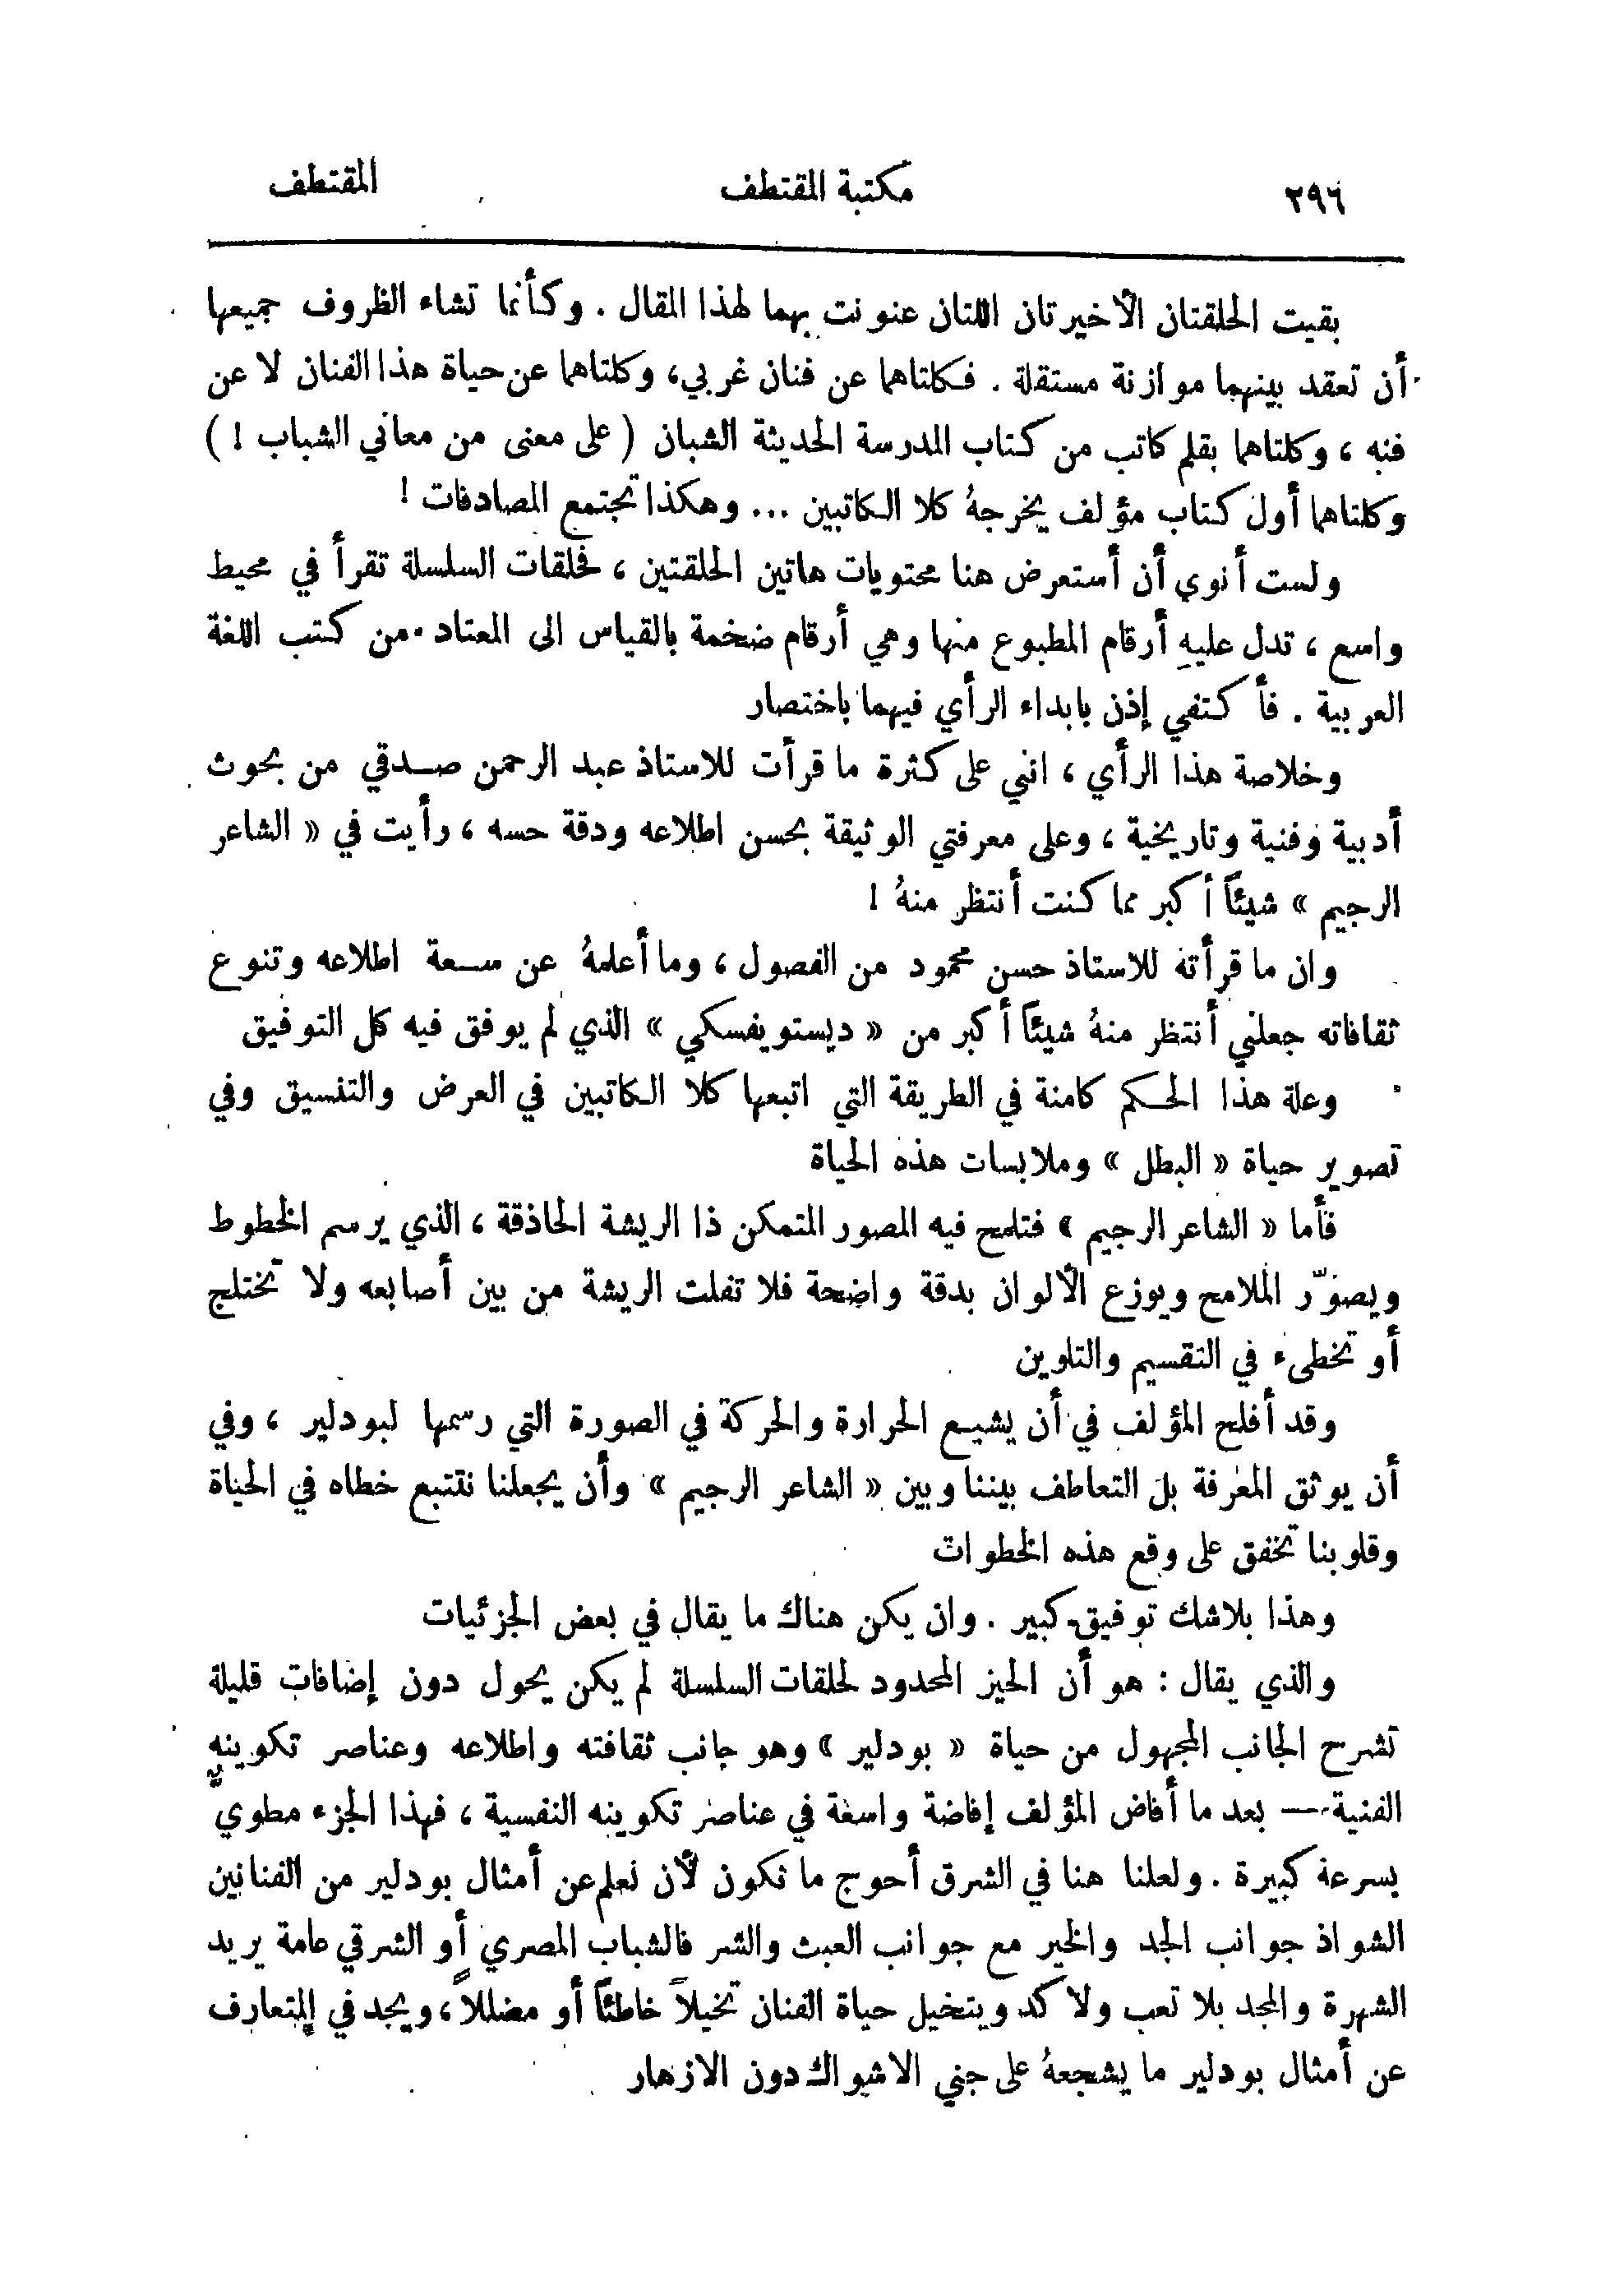 ٢٩٦ مكتبة المقتطف المقتطف
بقيت الحلقتان الأخيرتان اللتان عنونت بهما لهذا المقال . وكأنما تشاء الظروف جميعها
أن تعقد بينهما موازنة مستقلة . فكلتاهما عن فنان غربي، وكلتاهما عن حياة هذا الفنان لا عن
فنه ، وكلتاهما بقلم كاتب من كتاب المدرسة الحديثة الشبان ( على معنى من معاني الشباب ! )
وكلتاهما أول كتاب مؤلف يخرجهُ كلا الكاتبين ... وهكذا تجتمع المصادفات !
ولست أنوي أن أستعرض هنا محتويات هاتين الحلقتين ، فحلقات السلسلة تقرأ في محيط
واسع ، تدل عليهِ أرقام المطبوع منها وهي أرقام ضخمة بالقياس الى المعتاد من كتب اللغة
العربية . فأكتفي إذن بابداء الرأي فيهما باختصار
وخلاصة هذا الرأي ، انني على كثرة ما قرأت للاستاذ عبد الرحمن صدقي من بحوث
أدبية وفنية وتاريخية ، وعلى معرفتي الوثيقة بحسن اطلاعه ودقة حسه ، رأيت في « الشاعر
الرجيم » شيئاً أكبر مما كنت أنتظر منهُ !
وان ما قرأته للاستاذ حسن محمود من الفصول ، وما أعلمهُ عن سعة اطلاعه وتنوع
ثقافاته جعلني أنتظر منهُ شيئاً أكبر من « ديستويفسكي » الذي لم يوفق فيه كل التوفيق
وعلة هذا الحكم كامنة في الطريقة التي اتبعها كلا الكاتبين في العرض والتنسيق وفي
تصوير حياة « البطل » وملابسات هذه الحياة
فأما « الشاعر الرجيم » فتلمح فيه المصور المتمكن ذا الريشة الحاذقة ، الذي يرسم الخطوط
ويصوّر الملامح ويوزع الألوان بدقة واضحة فلا تفلت الريشة من بين أصابعه ولا تختلج
أو تخطىء في التقسيم والتلوين
وقد أفلح المؤلف في أن يشيع الحرارة والحركة في الصورة التي رسمها لبودلير ، وفي
أن يوثق المعرفة بل التعاطف بيننا وبين « الشاعر الرجيم » وأن يجعلنا نتتبع خطاه في الحياة
وقلوبنا تخفق على وقع هذه الخطوات
وهذا بلاشك توفيق كبير . وان يكن هناك ما يقال في بعض الجزئيات
والذي يقال : هو أن الحيز المحدود لحلقات السلسلة لم يكن يحول دون إضافات قليلة
تشرح الجانب المجهول من حياة « بودلير » وهو جانب ثقافته واطلاعه وعناصر تكوينه
الفنية — بعد ما أفاض المؤلف إفاضة واسعة في عناصر تكوينه النفسية ، فهذا الجزء مطويٌّ
بسرعة كبيرة . ولعلنا هنا في الشرق أحوج ما نكون لأن نعلم عن أمثال بودلير من الفنانين
الشواذ جوانب الجد والخير مع جوانب العبث والشر فالشباب المصري أو الشرقي عامة يريد
الشهرة والمجد بلا تعب ولا كد ويتخيل حياة الفنان تخيلاً خاطئاً أو مضللاً ، ويجد في المتعارف
عن أمثال بودلير ما يشجعهُ على جني الاشواك دون الازهار